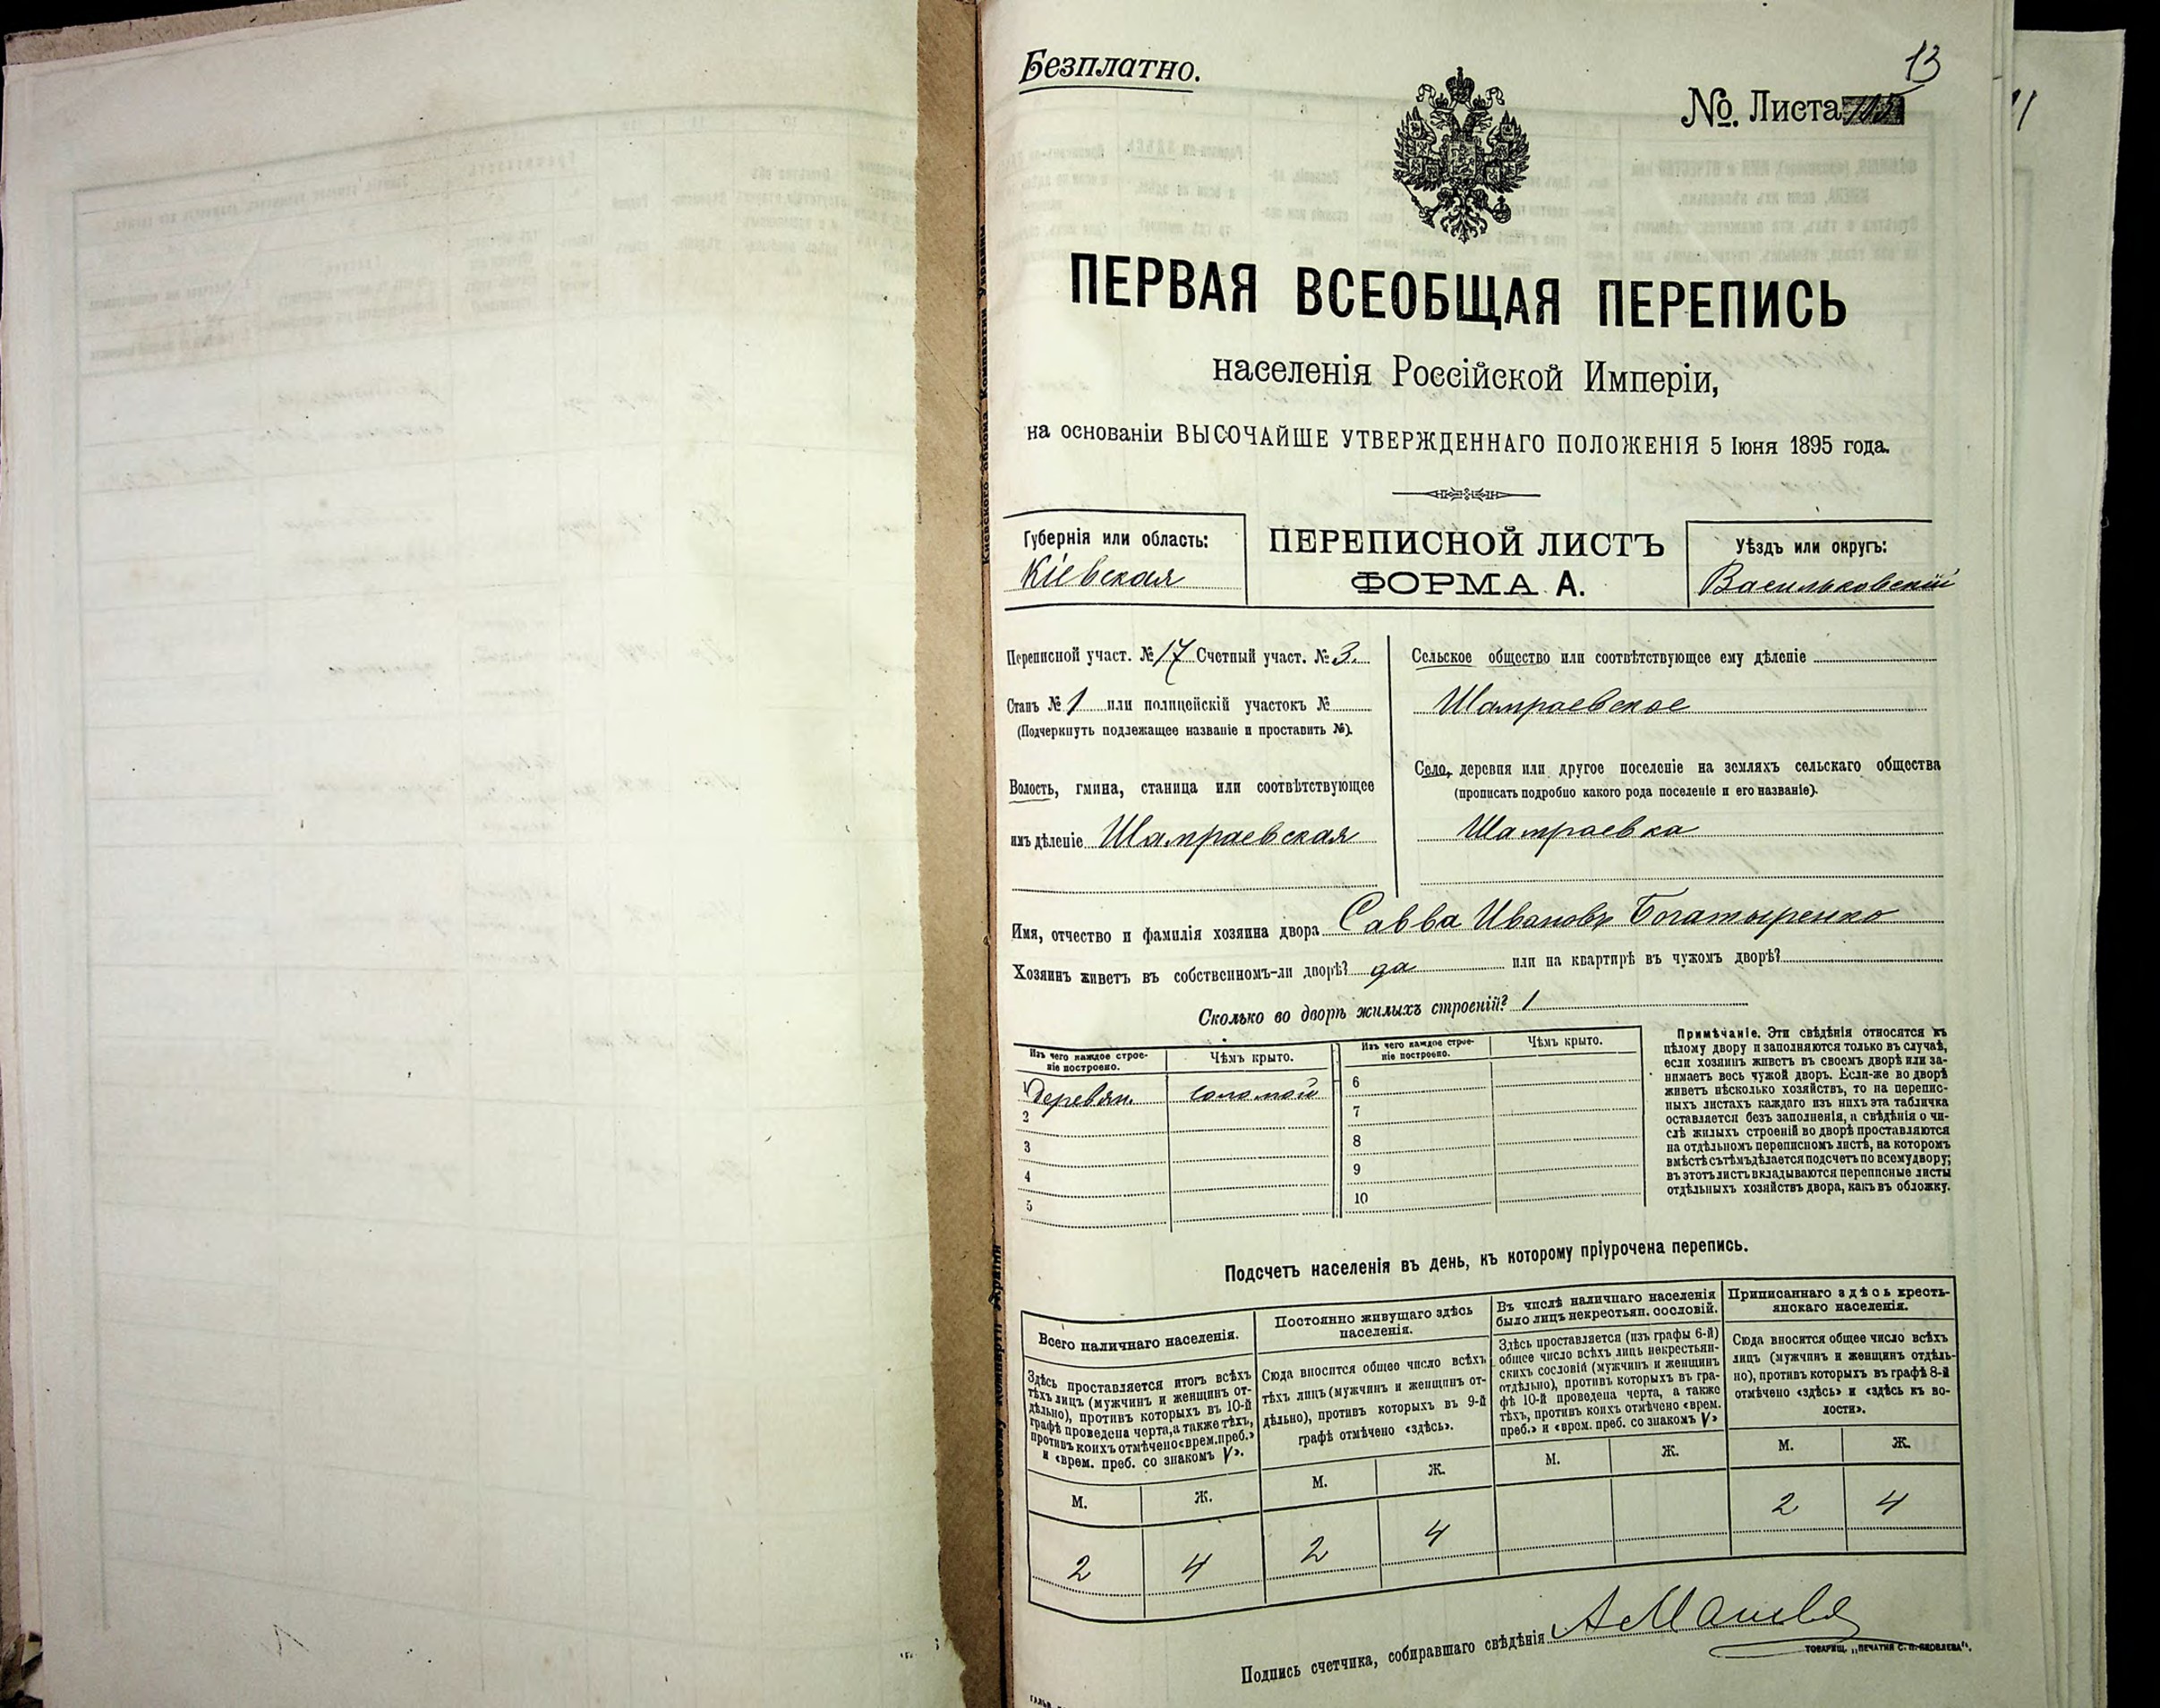 Безплатно.
13
№. Листа
ПЕРВАЯ ВСЕОБЩАЯ ПЕРЕПИСЬ
населенія Россійской Имперіи,
на основаніи ВЫСОЧАЙШЕ УТВЕРЖДЕННАГО ПОЛОЖЕНІЯ 5 Іюня 1895 года.
Губернія или область:
Кіевская
ПЕРЕПИСНОЙ ЛИСТЪ
ФОРМА А.
Уѣздъ или округъ:
Васильковскій
Переписной участ. № 17 Счетный участ. № 3.
Станъ № 1 или полицейскій участокъ №
(Подчеркнуть подлежащее названіе и проставить №).
Волость, гмина, станица или соотвѣтствующее
имъ дѣленіе Шамраевская
Сельское общество или соотвѣтствующее ему дѣленіе
Шамраевское
Село, деревня или другое поселеніе на земляхъ сельскаго общества
(прописать подробно какого рода поселеніе и его названіе).
Шамраевка
Имя, отчество и фамилія хозяина двора Савва Ивановъ Богатыренко
Хозяинъ живетъ въ собственномъ-ли дворѣ? да или на квартирѣ въ чужомъ дворѣ?
Сколько во дворѣ жилыхъ строеній? 1
Изъ чего каждое строе-
ніе построено.
Чѣмъ крыто.
1 Деревян. соломой
2
3
4
5
Изъ чего каждое строе-
ніе построено.
Чѣмъ крыто.
6
7
8
9
10
Примѣчаніе. Эти свѣдѣнія относятся къ
цѣлому двору и заполняются только въ случаѣ,
если хозяинъ живетъ въ своемъ дворѣ или за-
нимаетъ весь чужой дворъ. Если-же во дворѣ
живетъ нѣсколько хозяйствъ, то на перепис-
ныхъ листахъ каждаго изъ нихъ эта табличка
оставляется безъ заполненія, а свѣдѣнія о чи-
слѣ жилыхъ строеній во дворѣ проставляются
на отдѣльномъ переписномъ листѣ, на которомъ
вмѣстѣ съ тѣмъ дѣлается подсчетъ по всему двору;
въ этотъ листъ вкладываются переписные листы
отдѣльныхъ хозяйствъ двора, какъ въ обложку.
Подсчетъ населенія въ день, къ которому пріурочена перепись.
Всего наличнаго населенія.
Здѣсь проставляется итогъ всѣхъ
тѣхъ лицъ (мужчинъ и женщинъ от-
дѣльно), противъ которыхъ въ 10-й
графѣ проведена черта, а также тѣхъ,
противъ коихъ отмѣчено «врем. преб.»
и «врем. преб. со знакомъ V».
М. Ж.
2 4
Постоянно живущаго здѣсь
населенія.
Сюда вносится общее число всѣхъ
тѣхъ лицъ (мужчинъ и женщинъ от-
дѣльно), противъ которыхъ въ 9-й
графѣ отмѣчено «здѣсь».
М. Ж.
2 4
Въ числѣ наличнаго населенія
было лицъ некрестьян. сословій.
Здѣсь проставляется (изъ графы 6-й)
общее число всѣхъ лицъ некрестьян-
скихъ сословій (мужчинъ и женщинъ
отдѣльно), противъ которыхъ въ гра-
фѣ 10-й проведена черта, а также
тѣхъ, противъ коихъ отмѣчено «врем.
преб.» и «врем. преб. со знакомъ V»
М. Ж.
Приписаннаго здѣсь кресть-
янскаго населенія.
Сюда вносится общее число всѣхъ
лицъ (мужчинъ и женщинъ отдѣль-
но), противъ которыхъ въ графѣ 8-й
отмѣчено «здѣсь» и «здѣсь къ во-
лости».
М. Ж.
2 4
Подпись счетчика, собиравшаго свѣдѣнія
ТОВАРИЩ. „ПЕЧАТНЯ С. П. ЯКОВЛЕВА".